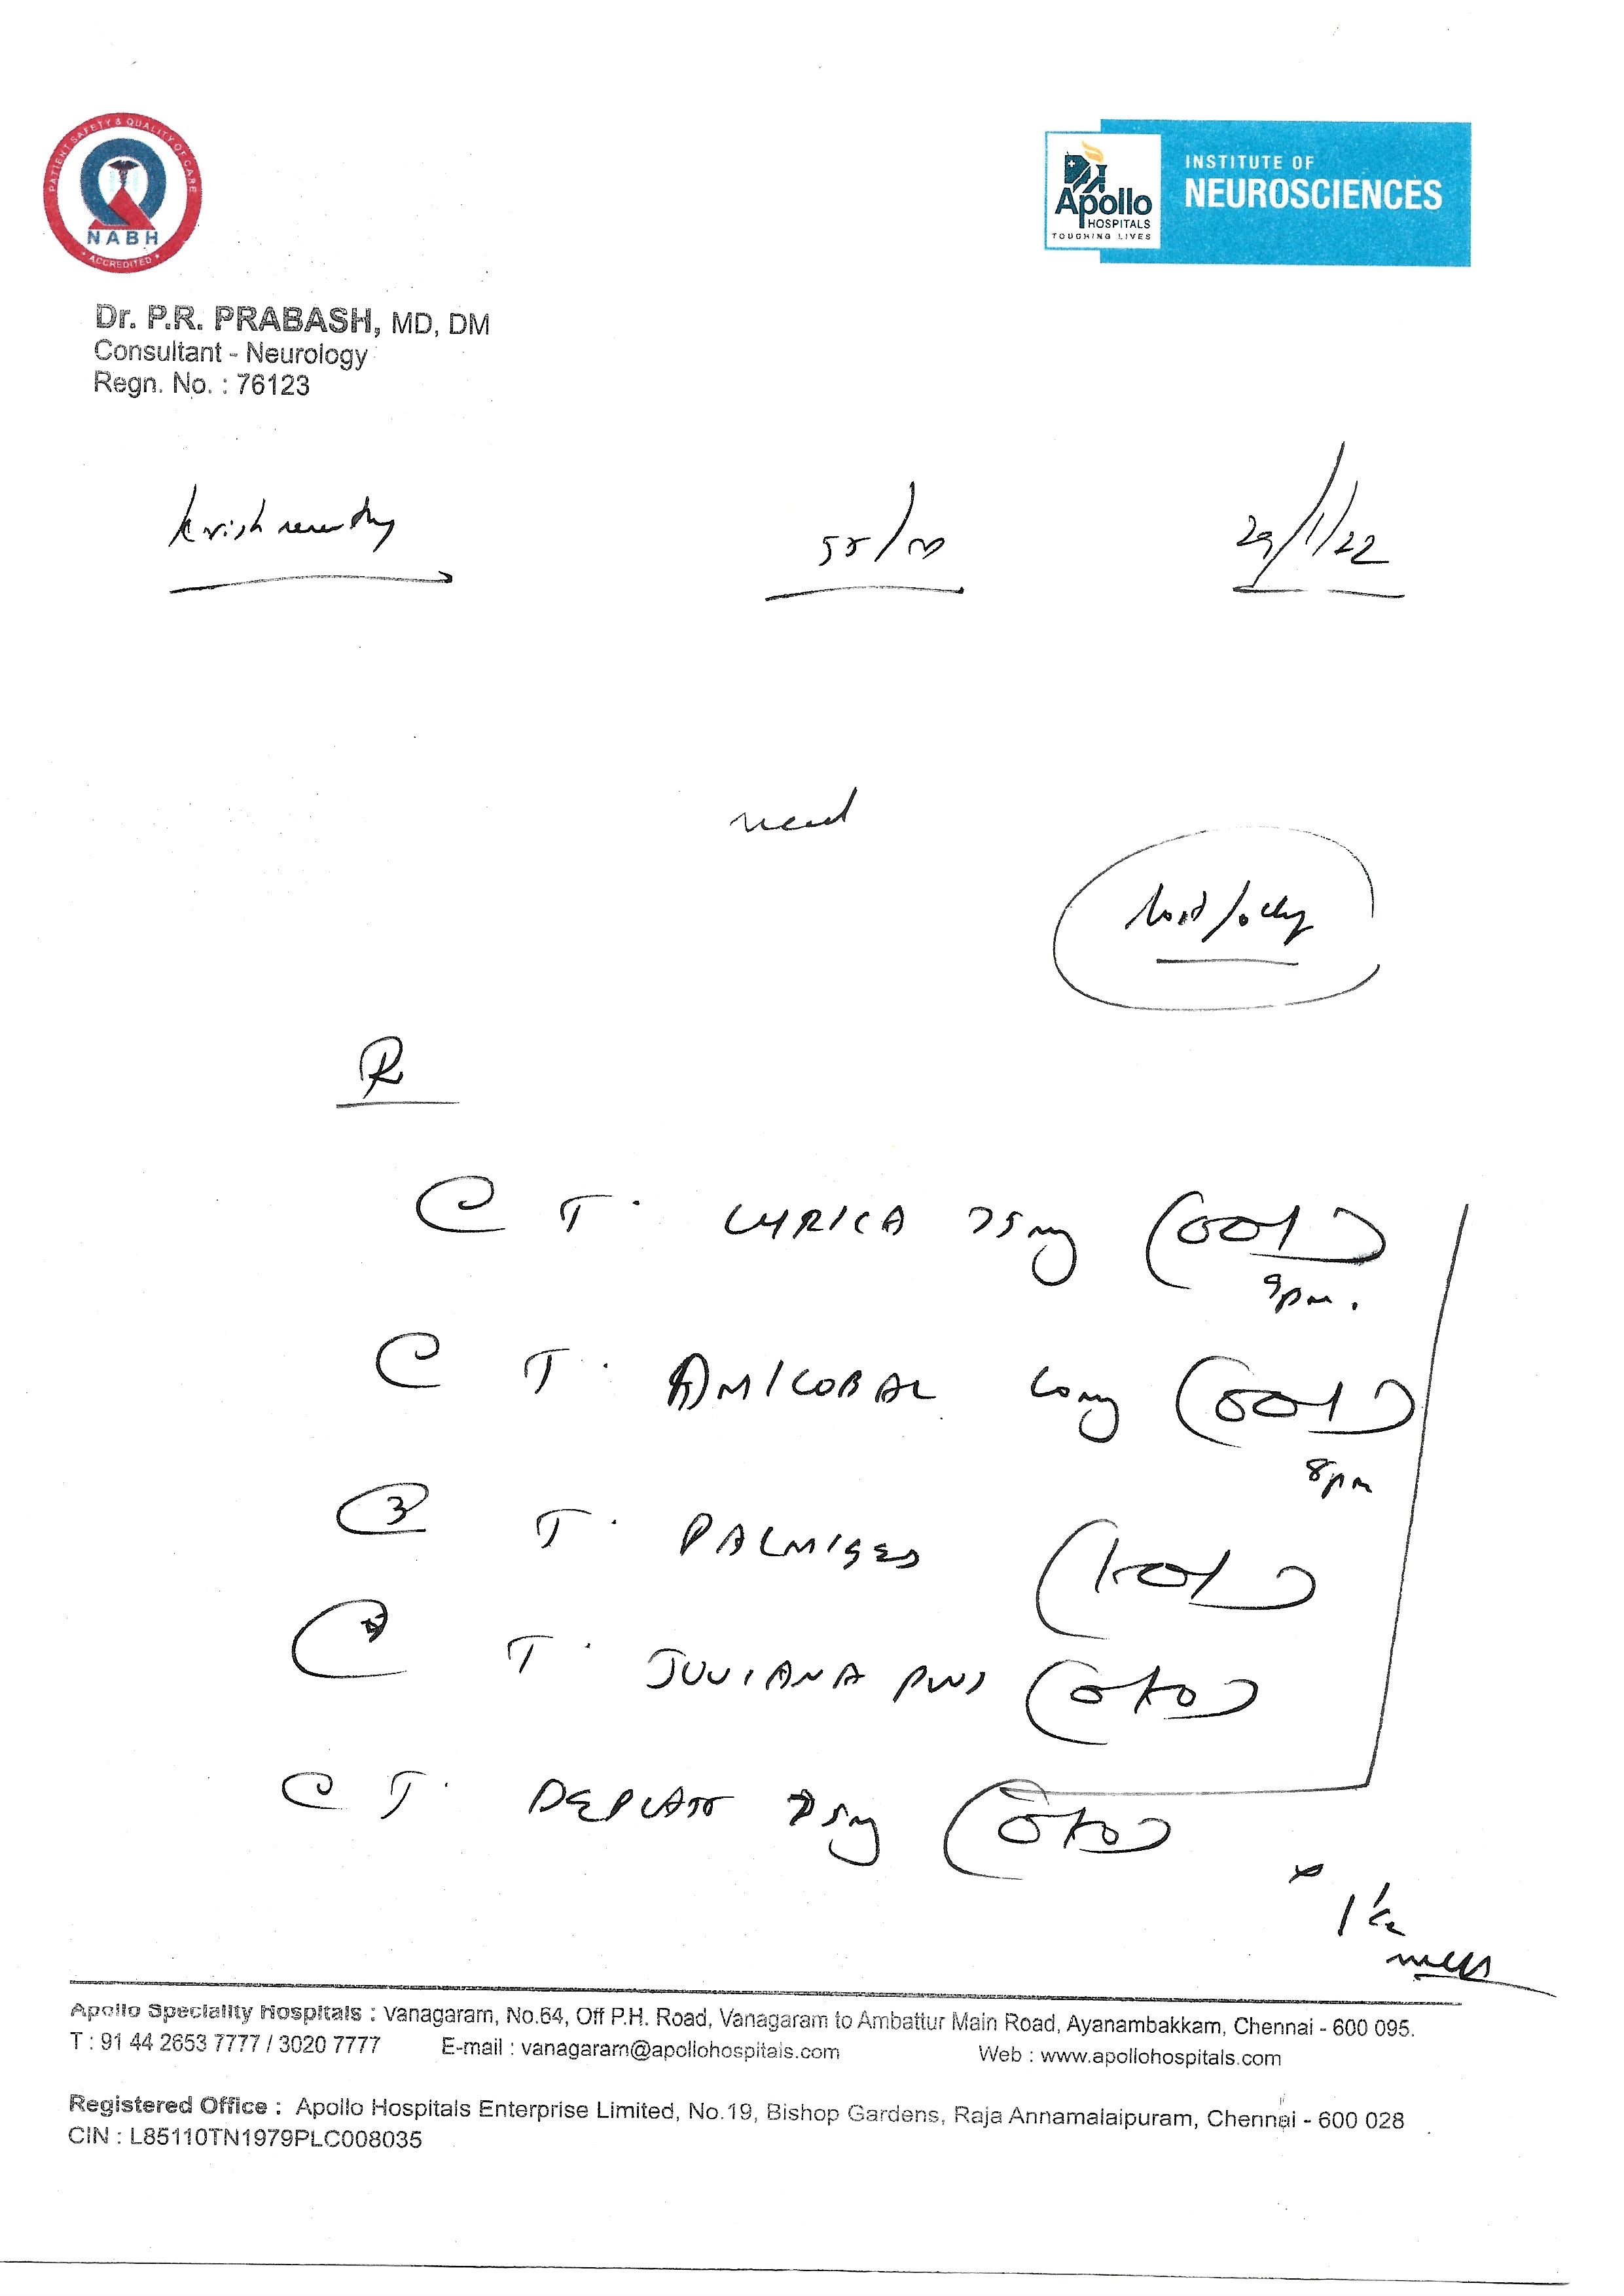 PATIENT SAFETY & QUALITY OF CARE
NABH
ACCREDITED
INSTITUTE OF
NEUROSCIENCES
Apollo
HOSPITALS
TOUCHING LIVES
Dr. P.R. PRABASH, MD, DM
Consultant - Neurology
Regn. No. : 76123
29/1/22
need
R
T. LYRICA 75mg (001)
9pm.
T. AMICOBAL (001)
8pm
3 T. PALMIGES (101)
T. JUVIANA (010)
T. DEPLATT 75mg (010)
x 1 1/2
Apollo Speciality Hospitals : Vanagaram, No.64, Off P.H. Road, Vanagaram to Ambattur Main Road, Ayanambakkam, Chennai - 600 095.
T : 91 44 2653 7777 / 3020 7777 E-mail : vanagaram@apollohospitals.com Web : www.apollohospitals.com
Registered Office : Apollo Hospitals Enterprise Limited, No.19, Bishop Gardens, Raja Annamalaipuram, Chennai - 600 028
CIN : L85110TN1979PLC008035